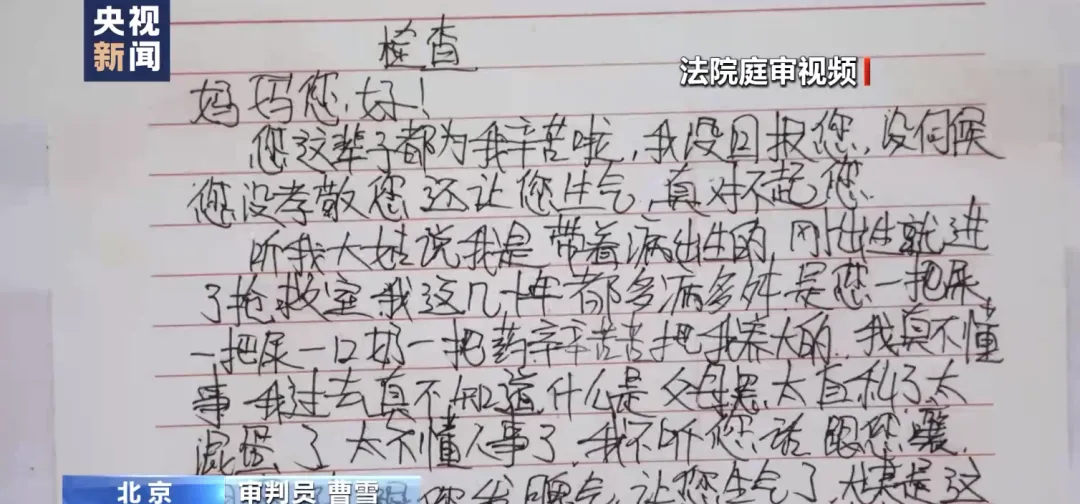 央视
新闻
法院庭审视频
检查
妈妈您好！
您这辈子都为我辛苦啦，我没回报您，没伺候
您没孝敬您还让您生气，真对不起您
听我大姑说我是带着病出生的，刚出生就进
了抢救室，我这几十年都多病多灾，是您一把屎
一把尿一口奶一把药辛辛苦苦把我养大的，我真不懂
事，我过去真不知道什么是父母恩，太自私了太
混蛋了，太不懂人事了，我不听您话，跟您嚷，
您我 气，让您生气了，尤其是这
北京
审判员 曹雪